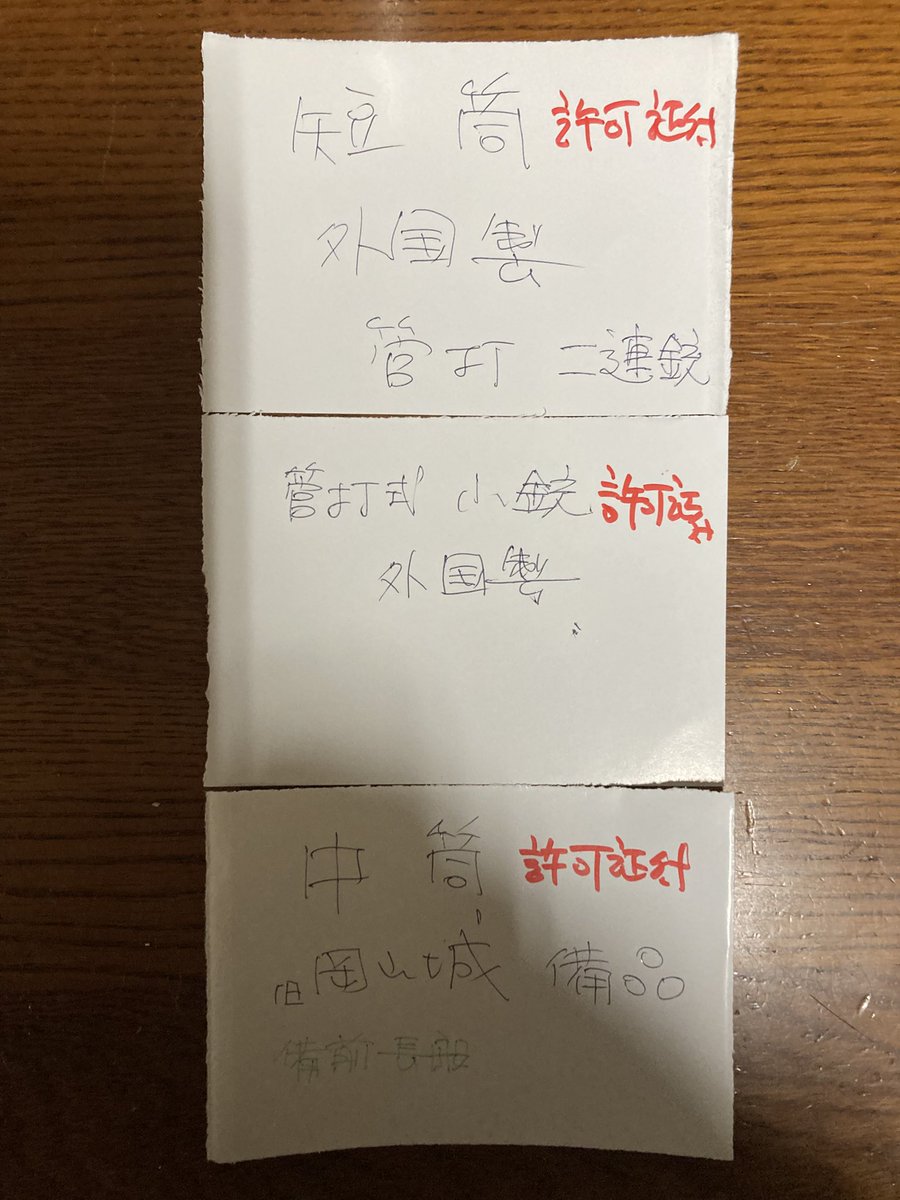 短筒 許可証付
外国製
管打 二連銃
管打式 小銃 許可証付
外国製
中筒 許可証付
但岡山城 備品
備前長船